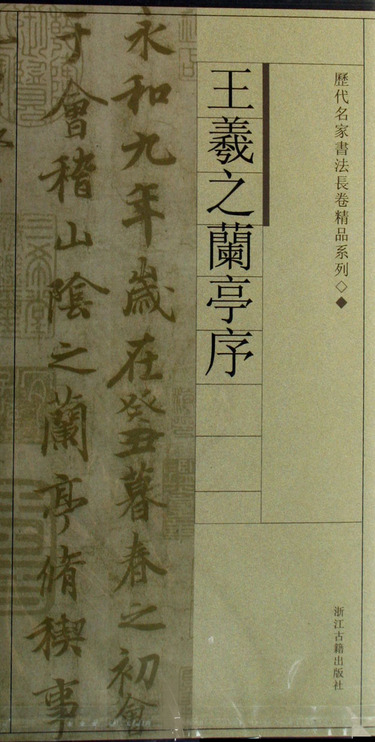 歷代名家書法長卷精品系列◇◆
王羲之蘭亭序
永和九年歲在癸丑暮春之初會
于會稽山陰之蘭亭脩稧事
浙江古籍出版社